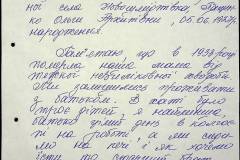 ної села Новошмідтівка,
Ольги Архипівни, 05.06.1927
народження.
Пам'ятаю що в 1933 році
померла наша мама від
тяжкої невиліковної хвороби.
Ми залишились проживати
з батьком. В сім'ї було
троє дітей, я найменша,
батько цілий день в колгос-
пі на роботі, а ми сиди-
мо на печі і як хочемо
їсти то старший брат